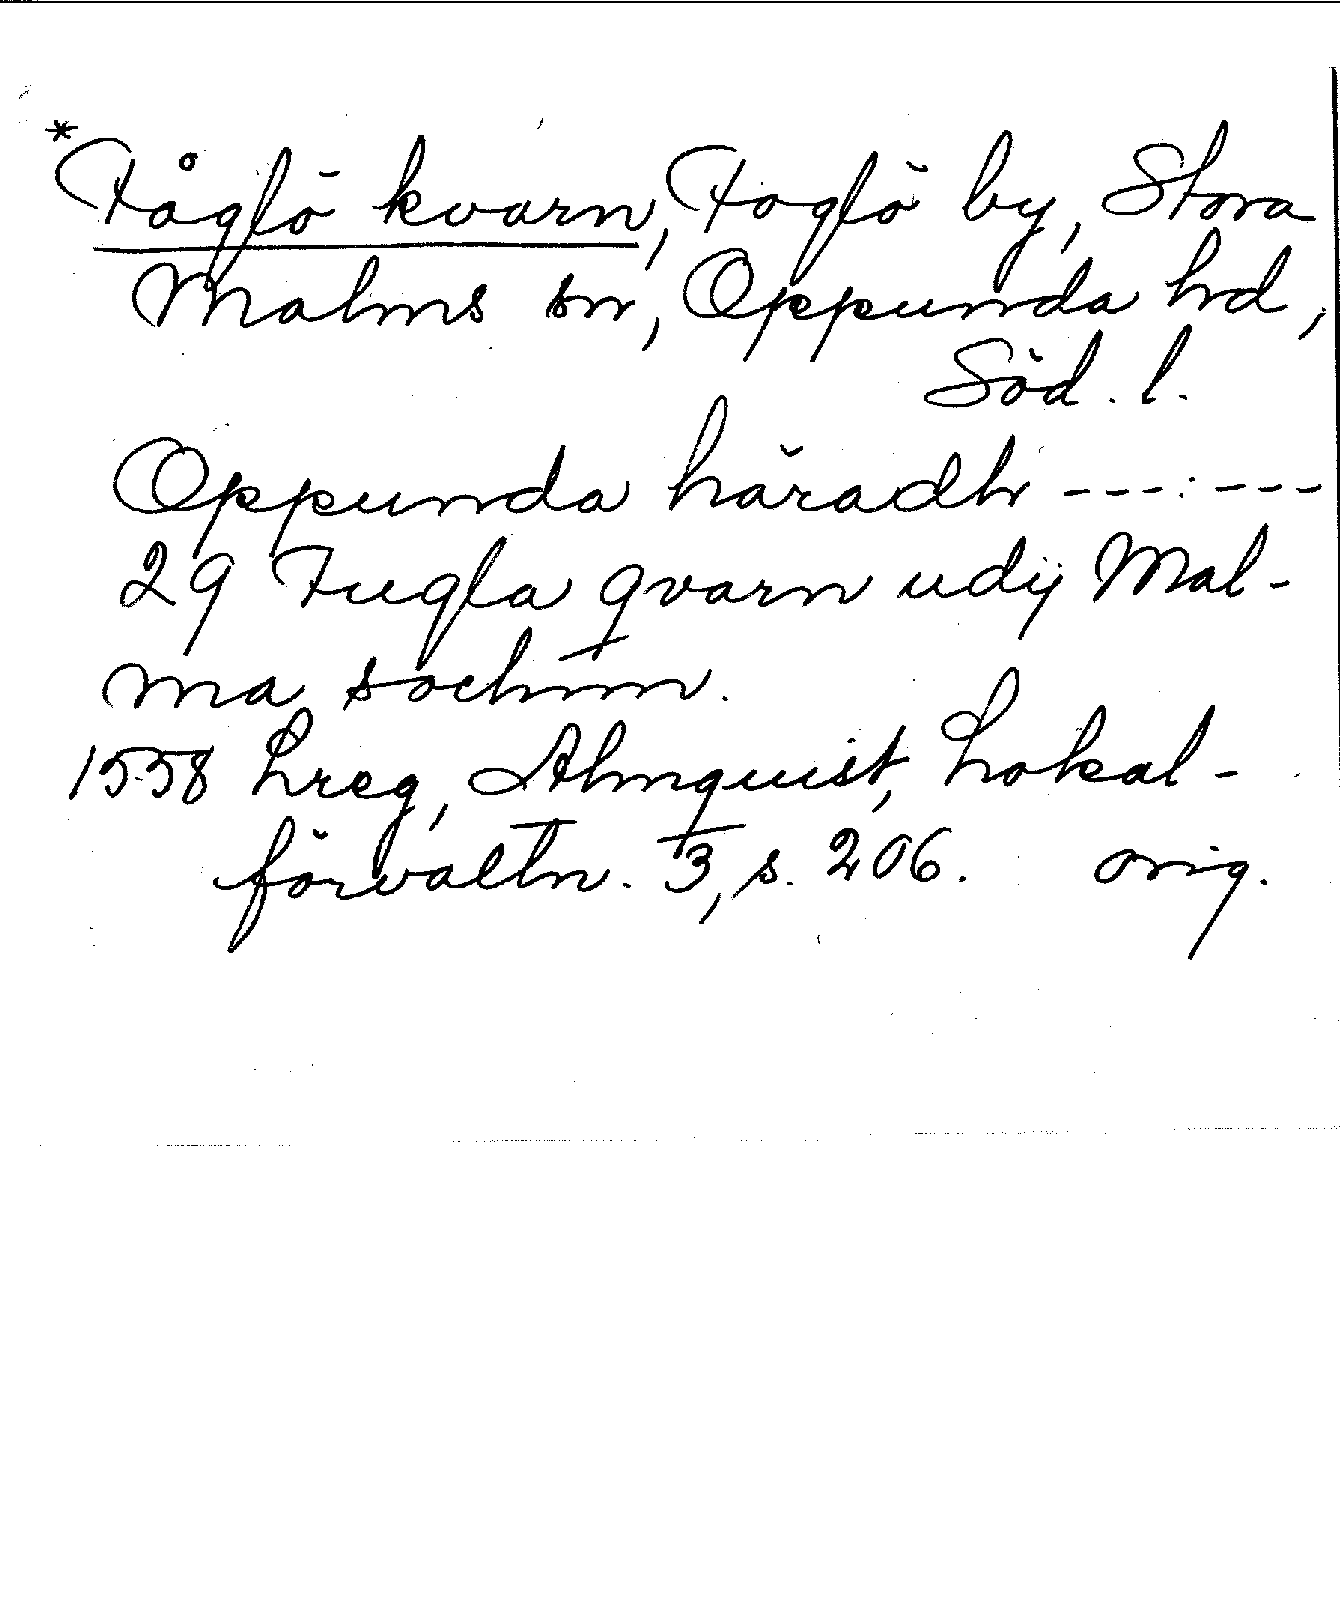 *Fåglö kvarn, Foglö by, Stora
Malms sn, Oppunda hrd,
Söd. l.
Oppunda häradh ---:---
29 Fugla qvarn udij Mal-
ma sochnn.
1558 Lreg, Almquist, Lokal-
förvaltn. 3, s. 206. orig.